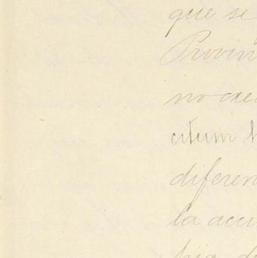 que se
Provin
no cre
citum
diferen
la acci